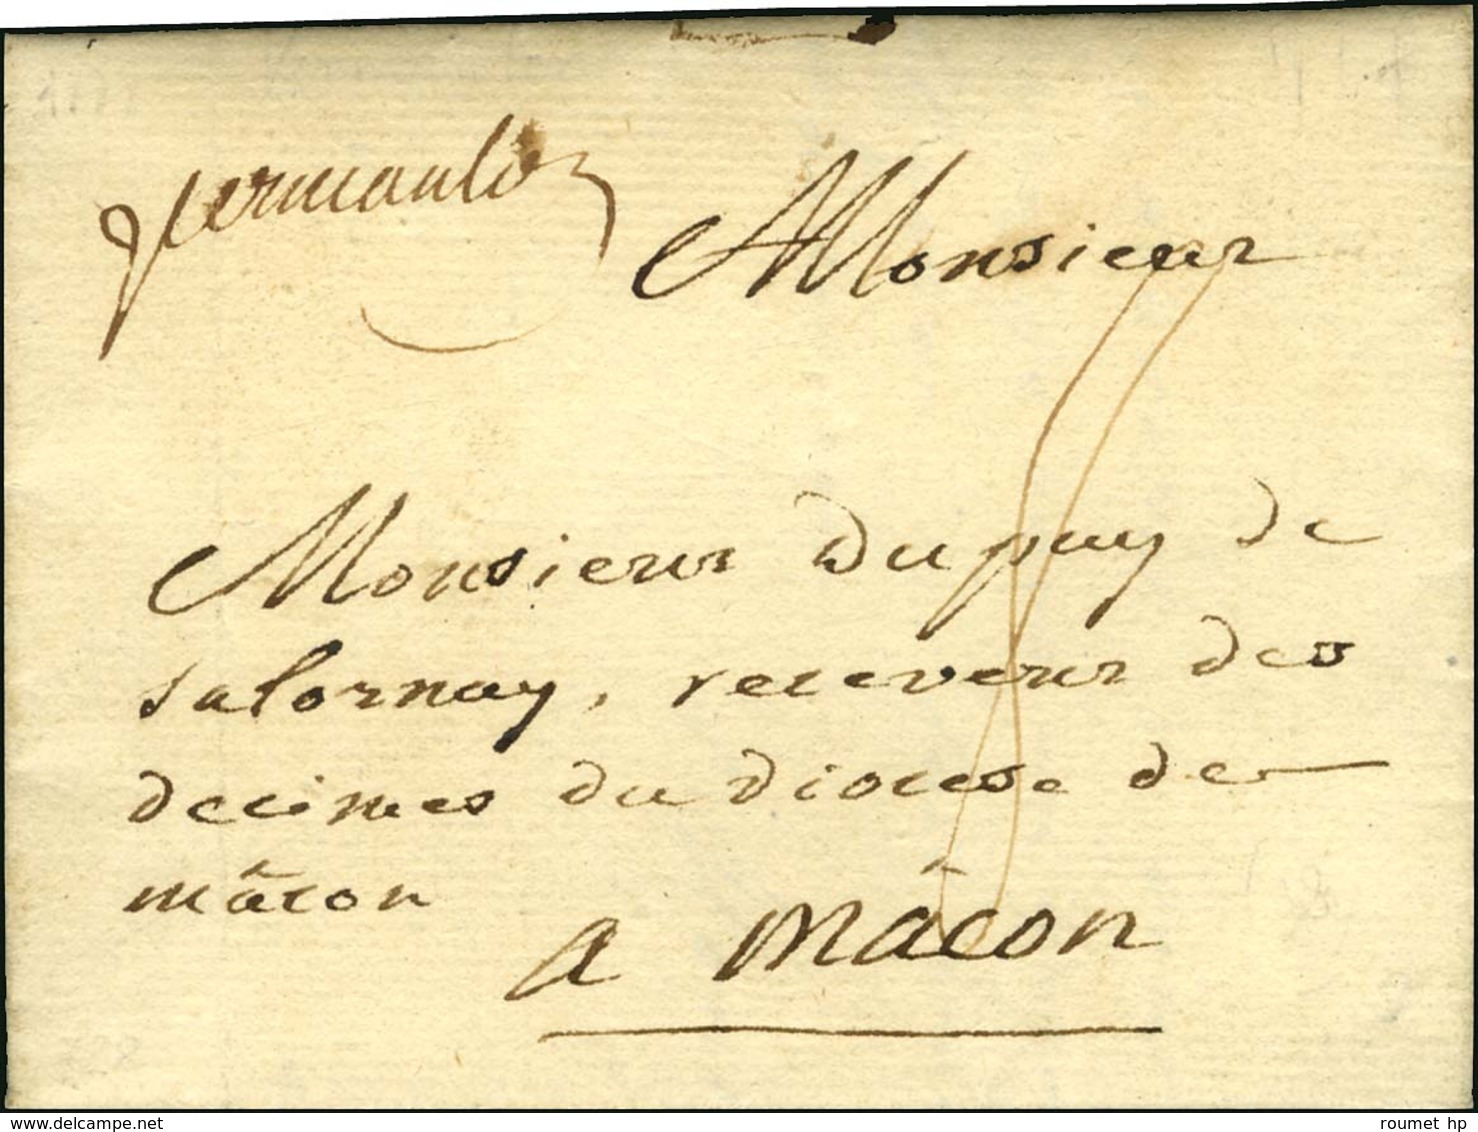 Monsieur
Monsieur Dupuy de
salornay, receveur des
decimes du diocese de
mâcon
a mâcon
delcampe.net
roumet hp